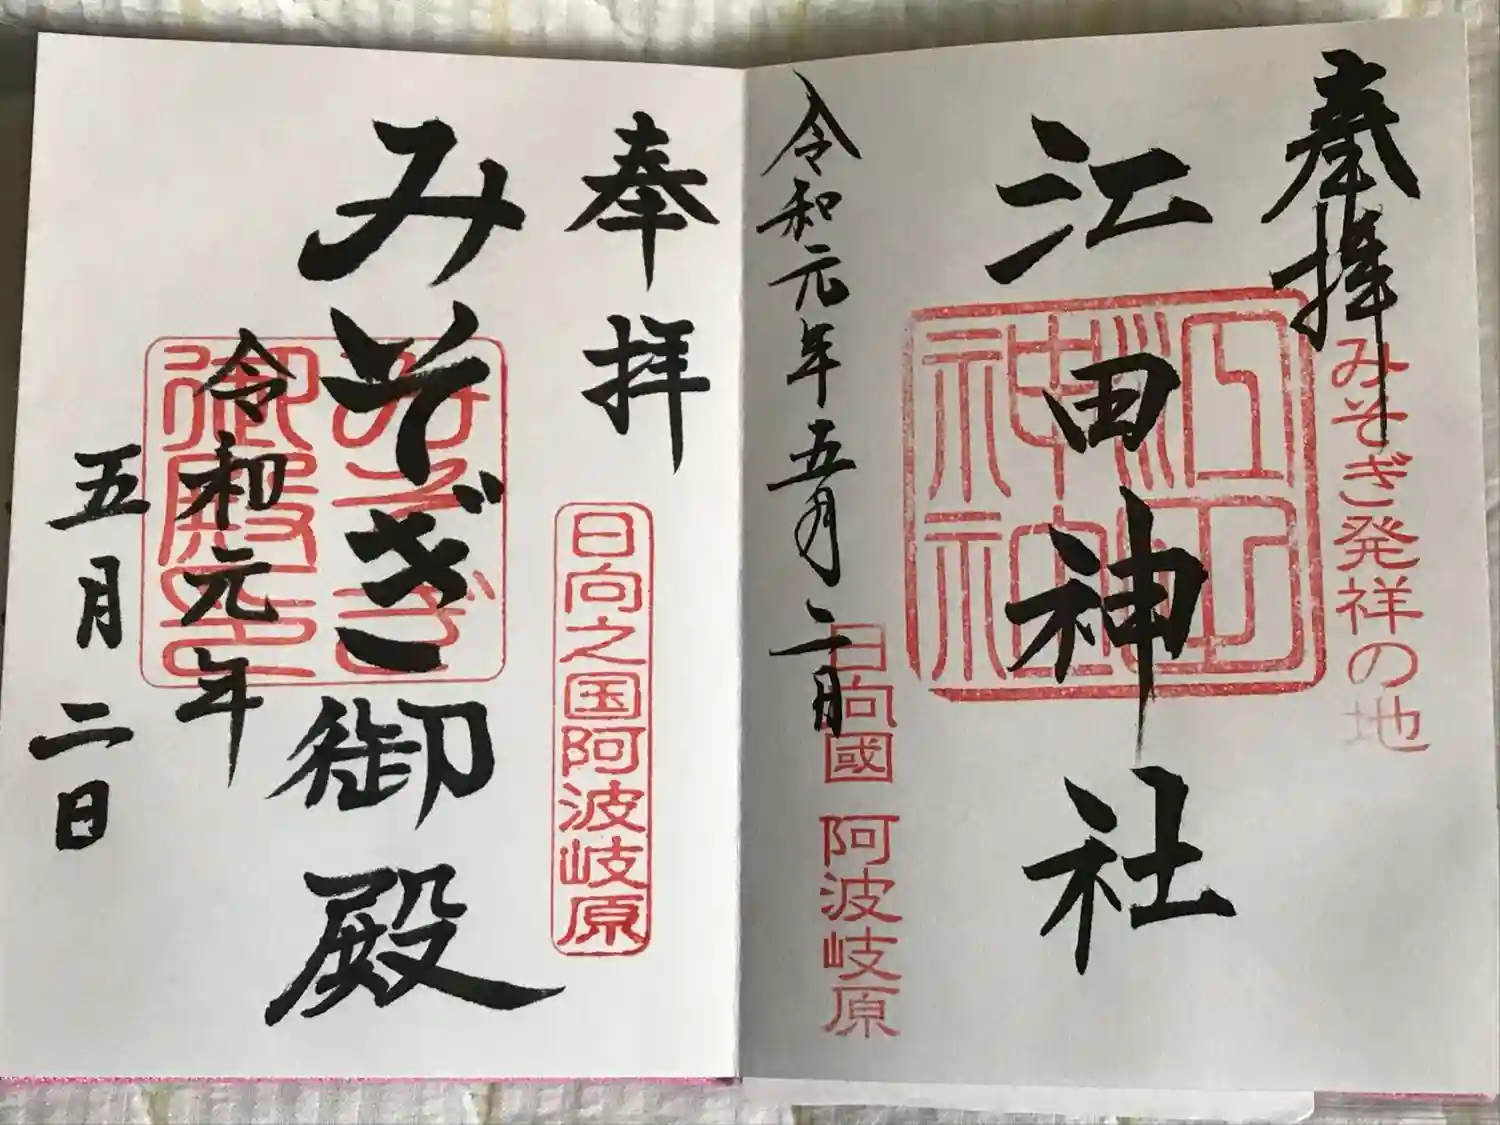 奉拝
みそぎ発祥の地
江田神社
江田
神社
令和元年五月二日
日向國 阿波岐原
奉拝
日向之国阿波岐原
みそぎ御殿
みそぎ
御殿之印
令和元年
五月二日